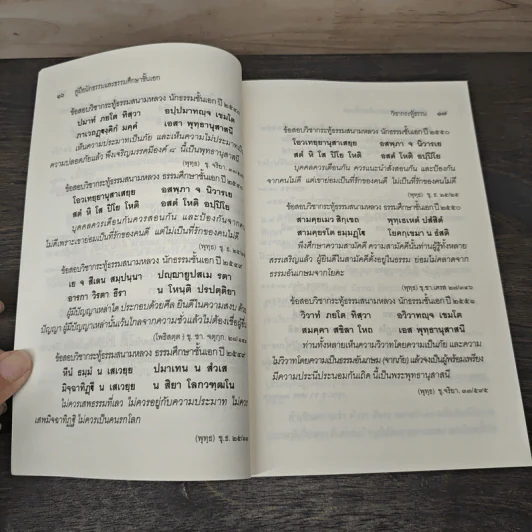 ๑๖ คู่มือนักธรรมและธรรมศึกษาชั้นเอก
ข้อสอบวิชากระทู้ธรรมสนามหลวง นักธรรมชั้นเอก ปี
ปมาทํ ภยโต ทิสฺวา อปฺปมาทญฺจ เขมโต
ภาเวถฏฺฐงฺคิกํ มคฺคํ เอสา พุทฺธานุสาสนี
ความประมาทเป็นภัย และเห็นความไม่ประมาทเป็น
ความปลอดภัยแล้ว พึงเจริญมรรคมีองค์ ๘ นี้เป็นพุทธานุสาสนี
(พุทฺธ) ขุ. จริยา.
ข้อสอบวิชากระทู้ธรรมสนามหลวง ธรรมศึกษาชั้นเอก ปี
โอวเทยฺยานุสาเสยฺย อสพฺภา จ นิวารเย
สตํ หิ โส ปิโย โหติ อสตํ โหติ อปฺปิโย
บุคคลควรเตือนกันควรสอนกัน และป้องกันจากคน
ไม่ดีเพราะเขาย่อมเป็นที่รักของคนดี แต่ไม่เป็นที่รักของคนไม่ดี
(พุทฺธ) ขุ. ธ.
ข้อสอบวิชากระทู้ธรรมสนามหลวง นักธรรมชั้นเอก ปี ๒๕๔๙
เย จ สีเลน สมฺปนฺนา ปญฺญายูปสเม รตา
อารกา วิรตา ธีรา น โหนฺติ ปรปตฺติยา
ผู้มีปัญญาเหล่าใด ประกอบด้วยศีล ยินดีในความสงบ ด้วย
ปัญญา ผู้มีปัญญาเหล่านั้นเว้นไกลจากความชั่วแล้วไม่ต้องเชื่อผู้อื่น
(โพธิสตฺต) ขุ. ชา. จตุกฺก.
ข้อสอบวิชากระทู้ธรรมสนามหลวง ธรรมศึกษาชั้นเอก ปี ๒๕๔๙
หีนํ ธมฺมํ น เสเวยฺย ปมาเทน น สํวเส
มิจฺฉาทิฏฺฐึ น เสเวยฺย น สิยา โลกวฑฺฒโน
ไม่ควรเสพธรรมที่เลว ไม่ควรอยู่กับความประมาท ไม่ควร
เสพมิจฉาทิฏฐิ ไม่ควรเป็นคนรกโลก
(พุทฺธ) ขุ. ธ.
วิชากระทู้ธรรม ๑๗
ข้อสอบวิชากระทู้ธรรมสนามหลวง นักธรรมชั้นเอก ปี ๒๕๕๐
โอวเทยฺยานุสาเสยฺย อสพฺภา จ นิวารเย
สตํ หิ โส ปิโย โหติ อสตํ โหติ อปฺปิโย
บุคคลควรเตือนกัน ควรแนะนำสั่งสอนกัน และป้องกัน
จากคนไม่ดี แต่เขาย่อมเป็นที่รักของคนดี ไม่เป็นที่รักของคนไม่ดี
(พุทฺธ) ขุ. ธ. ๒๕/๒๕
ข้อสอบวิชากระทู้ธรรมสนามหลวง ธรรมศึกษาชั้นเอก ปี ๒๕๕๐
สามคฺยเมว สิกฺเขถ พุทฺเธเหตํ ปสํสิตํ
สามคฺยรโต ธมฺมฏฺโฐ โยคกฺเขมา น ธํสติ
พึงศึกษาความสามัคคี ความสามัคคีนั้นท่านผู้รู้ทั้งหลาย
สรรเสริญแล้ว ผู้ยินดีในสามัคคีตั้งอยู่ในธรรม ย่อมไม่คลาดจาก
ธรรมอันเกษมจากโยคะ
(พุทฺธ) ขุ.ชา.เตรส ๒๗/๓๔๖
ข้อสอบวิชากระทู้ธรรมสนามหลวง นักธรรมชั้นเอก ปี ๒๕๕๑
วิวาทํ ภยโต ทิสฺวา อวิวาทญฺจ เขมโต
สมคฺคา สขิลา โหถ เอสา พุทฺธานุสาสนี
ท่านทั้งหลายเห็นความวิวาทโดยความเป็นภัย และความ
ไม่วิวาทโดยความเป็นธรรมอันเกษม (จากภัย) แล้วจงเป็นผู้พร้อมเพรียง
มีความประนีประนอมกันเถิด นี้เป็นพระพุทธานุสาสนี
(พุทฺธ) ขุ.จริยา. ๓๓/๕๙๕